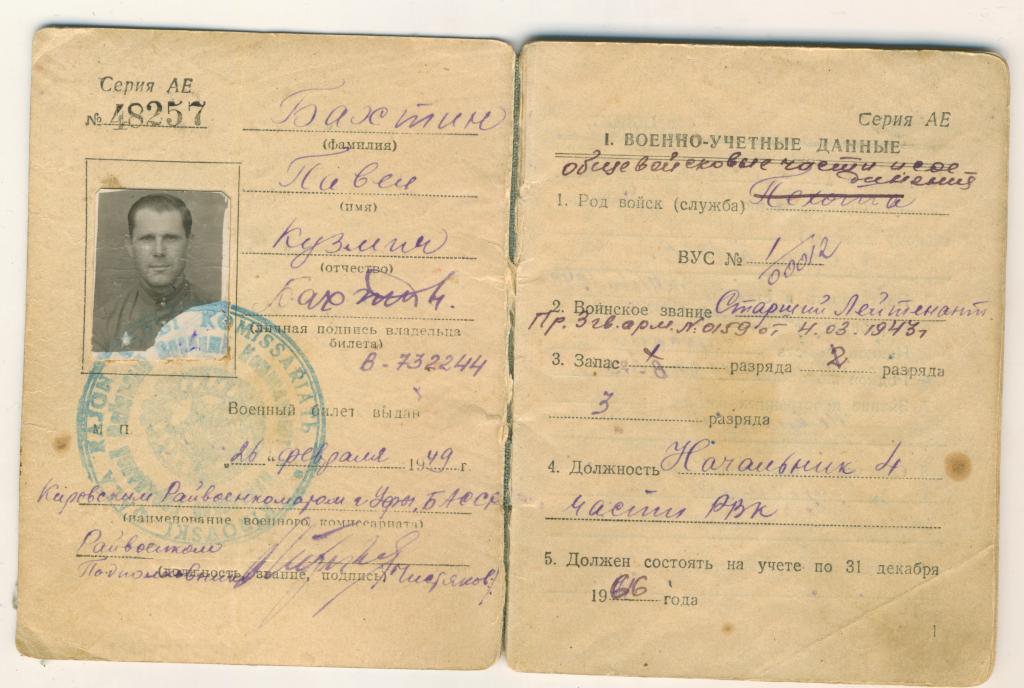 Серия АЕ
№ 48257
Бахтин
(фамилия)
Павел
(имя)
Кузмич
(отчество)
Бахтин.
(личная подпись владельца
билета)
В-732244
Военный билет выдан
М. П.
„26“ февраля 1949 г.
Кировским Райвоенкоматом г. Уфы, БАССР
(наименование военного комиссариата)
Райвоенком
Подполковник Чистяков
(должность, звание, подпись)
KOMISSARIATЬ
RAJON
Серия АЕ
I. ВОЕННО-УЧЕТНЫЕ ДАННЫЕ
общевойсковые части и сое
динения
1. Род войск (служба) Пехота
ВУС № 1/00012
2. Воинское звание Старший Лейтенант
Пр. 3 гв. арм. № 0159 от 4.03.1943г
3. Запас разряда 2 разряда
3 разряда
4. Должность Начальник 4
части РВК
5. Должен состоять на учете по 31 декабря
1966 года
1